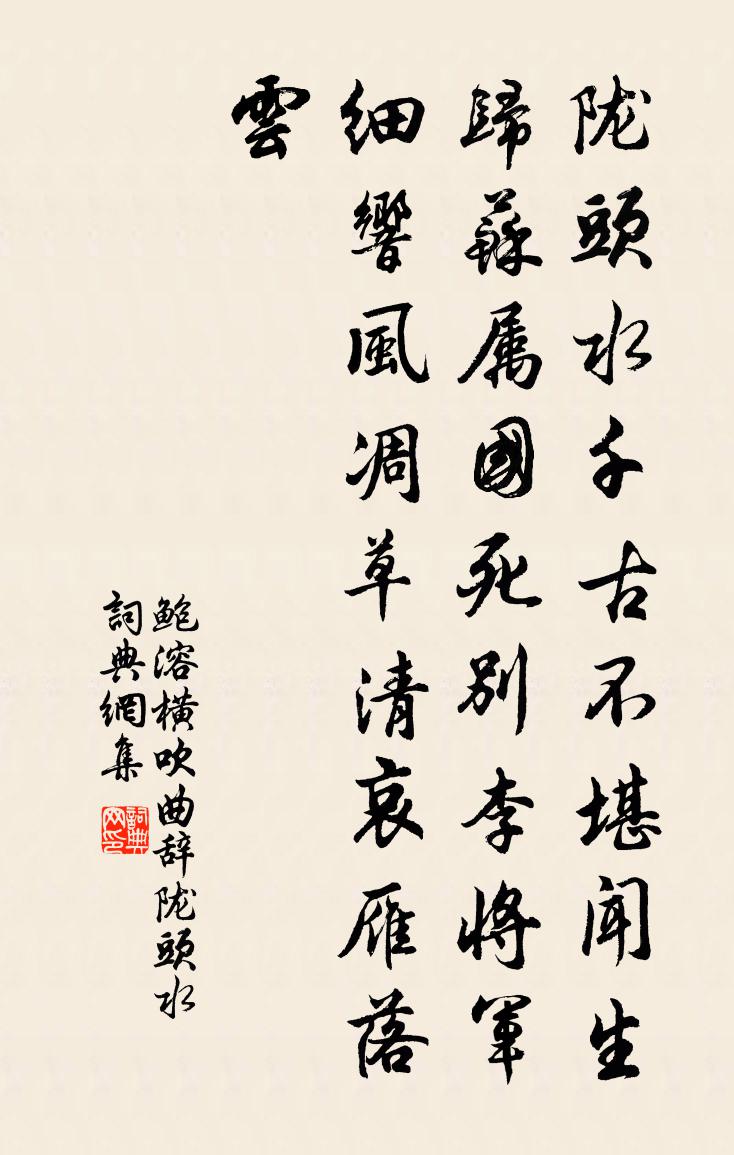 陇頭水千古不堪聞生
歸蘇属國死別李將軍
细響風凋草清哀雁落
雲
鲍溶橫吹曲辞陇頭水
詞典網集
詞典
网印